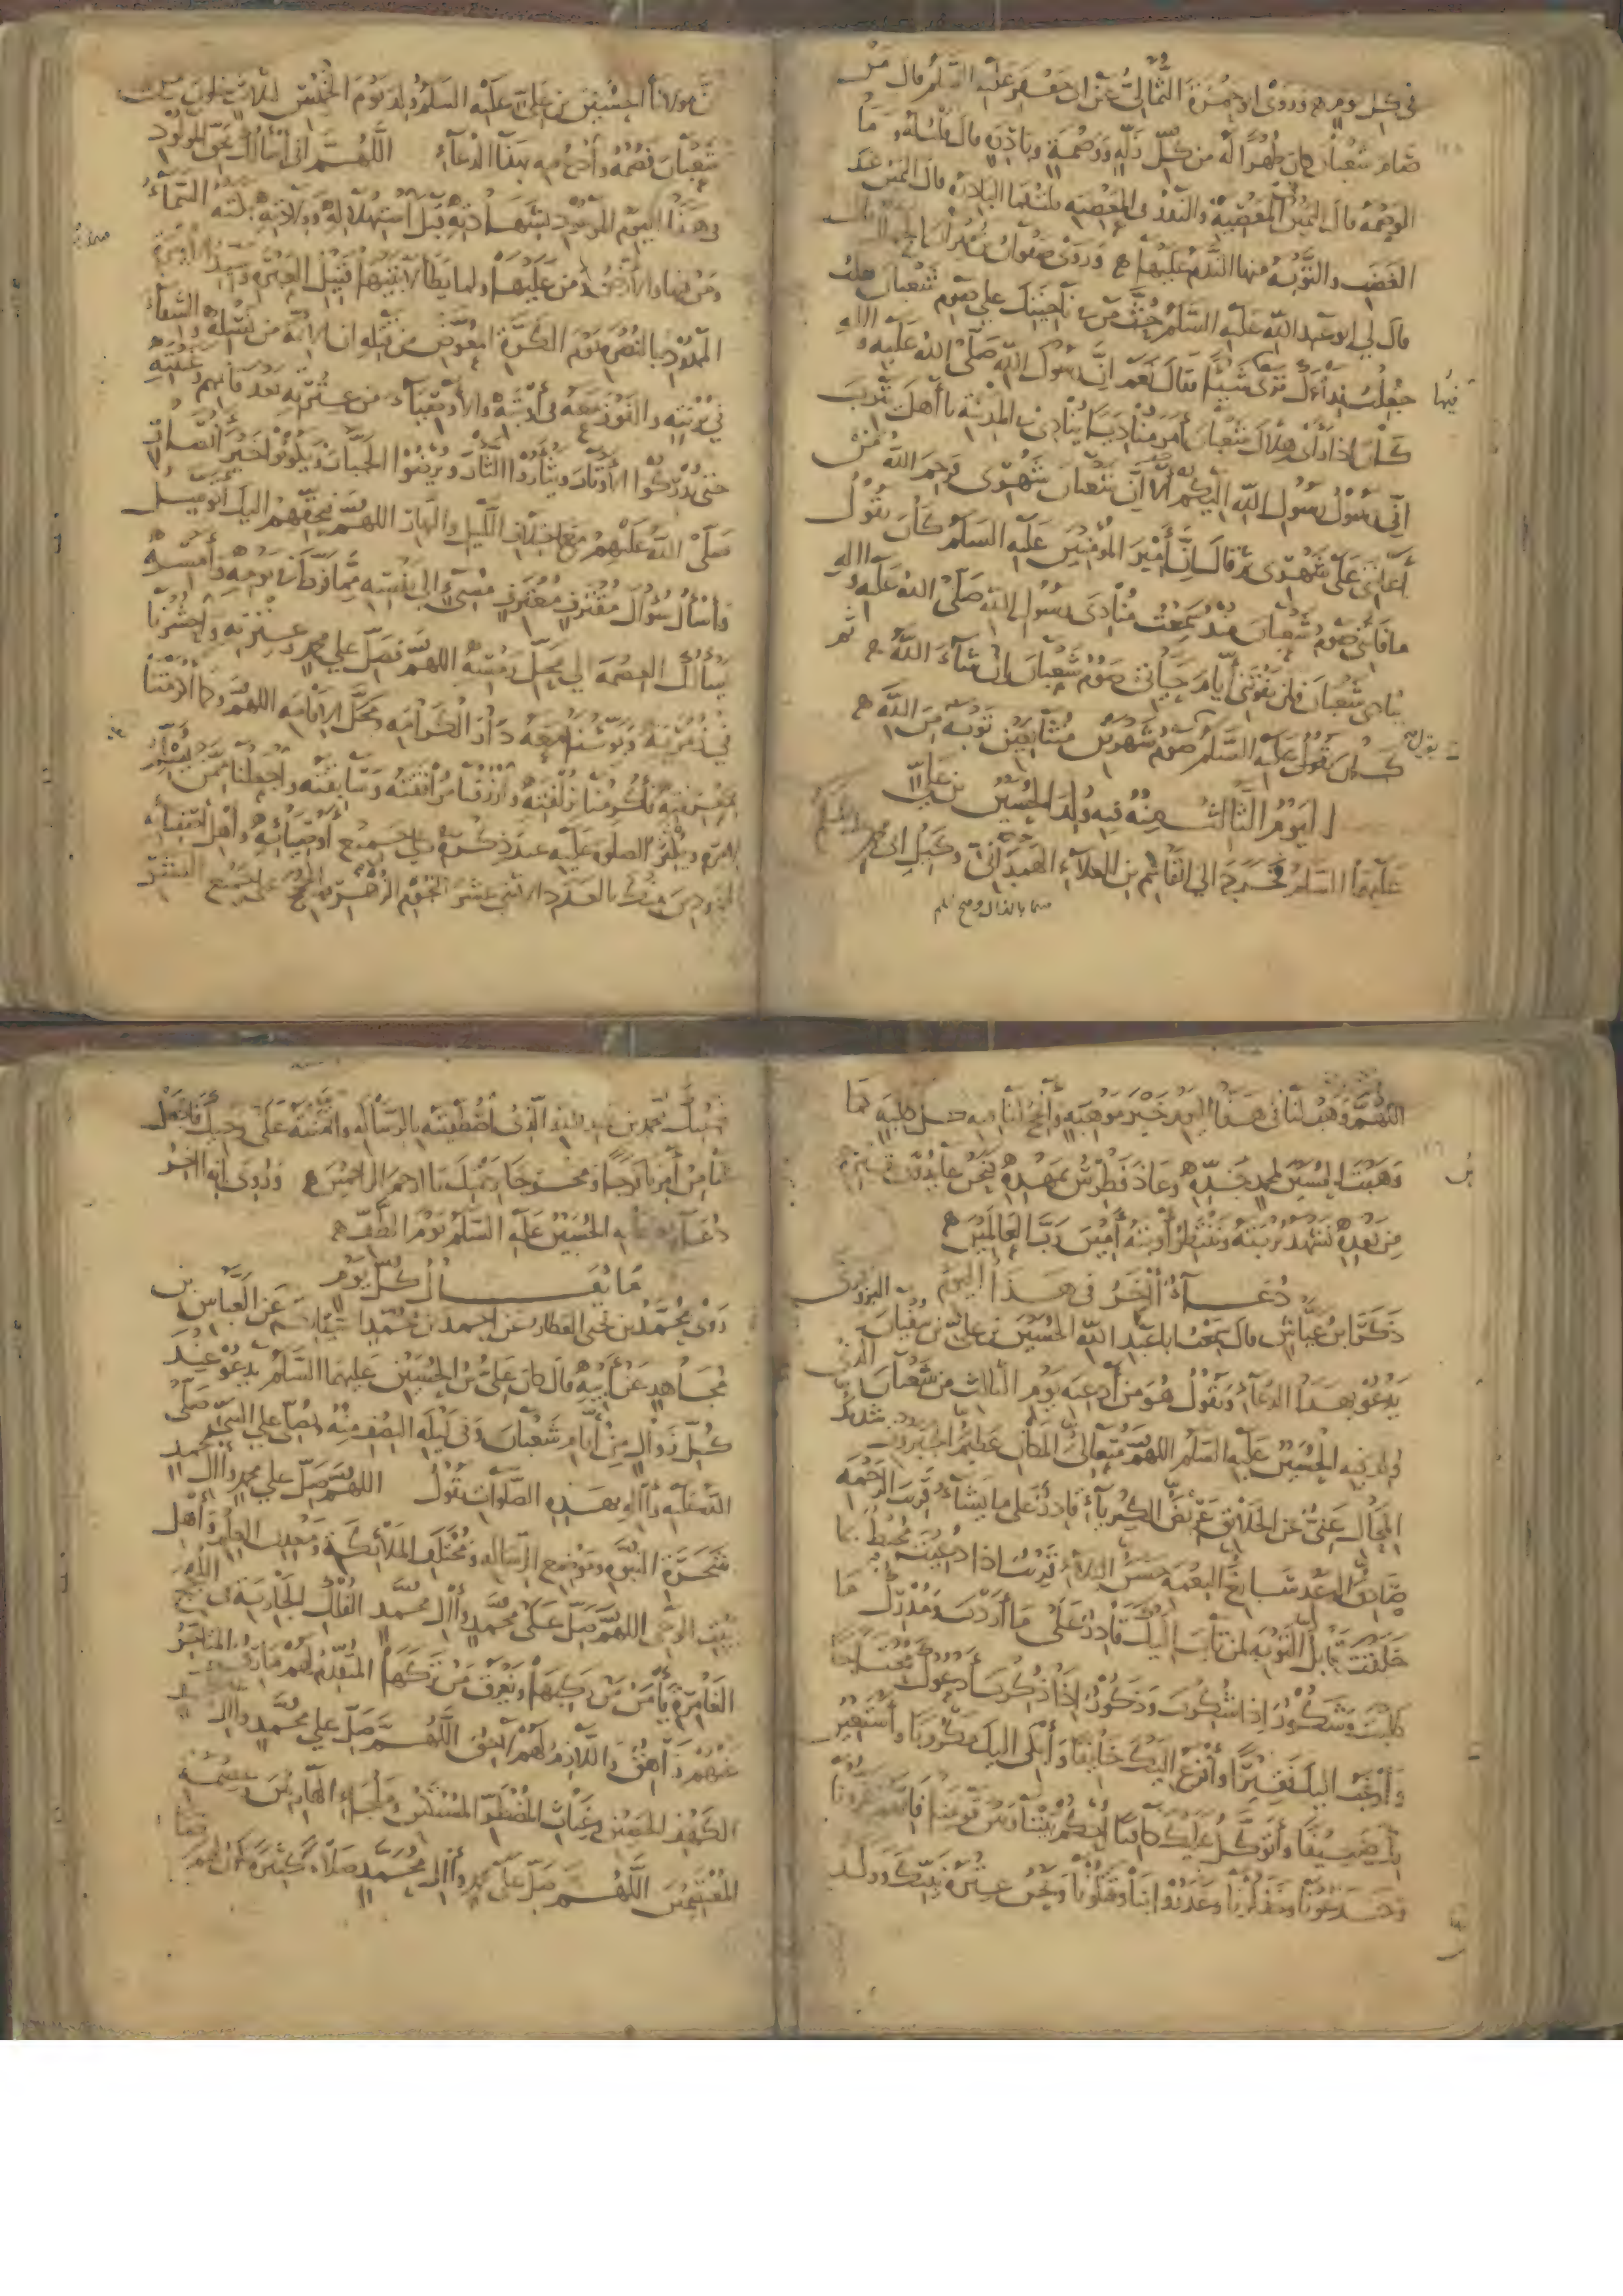 في كل يوم وروى ابو حمزة الثمالي عن ابي جعفر عليه السلم قال من
صام شعبان كان طهرا له من كل زلة ووصمة وبادرة قال قلت له وما
الوصمة قال اليمين في المعصية والنذر في المعصية قلت فما البادرة قال اليمين عند
الغضب والتوبة منها الندم عليها وروى صفوان بن مهران الجمال قال
قال لي ابو عبد الله عليه السلم حث من في ناحيتك على صوم شعبان فقلت
جعلت فداءك ترى فيها شيئا فقال نعم ان رسول الله صلى الله عليه واله
كان اذا رأى هلال شعبان أمر مناديا ينادي في المدينة يا أهل يثرب
اني رسول رسول الله اليكم ألا ان شعبان شهري فرحم الله من
أعانني على شهري ثم قال ان أمير المؤمنين عليه السلم كان يقول
ما فاتني صوم شعبان منذ سمعت منادي رسول الله صلى الله عليه واله
ينادي في شعبان فلن يفوتني أيام حياتي صوم شعبان ان شاء الله ثم
كان يقول عليه السلم صوم شهرين متتابعين توبة من الله
اليوم الثالث منه فيه ولد الحسين بن علي
عليهما السلم خرج الى القاسم بن العلاء الهمداني وكيل ابي محمد عليه السلم
ان مولانا الحسين بن علي عليه السلم ولد يوم الخميس لثلاث خلون من
شعبان فصمه وادع فيه بهذا الدعاء اللهم اني أسألك بحق المولود
في هذا اليوم الموعود بشهادته قبل استهلاله وولادته بكته السماء
ومن فيها والارض ومن عليها ولما يطأ لابتيها قتيل العبرة وسيد الاسرة
الممدود بالنصرة يوم الكرة المعوض من قتله ان الائمة من نسله والشفاء
في تربته والفوز معه في أوبته والأوصياء من عترته بعد قائمهم وغيبته
حتى يدركوا الأوتار ويثأروا الثار ويرضوا الجبار ويكونوا خير أنصار
صلى الله عليهم مع اختلاف الليل والنهار اللهم فبحقهم اليك أتوسل
وأسأل سؤال مقترف معترف مسيء الى نفسه مما فرط في يومه وأمسه
يسألك العصمة الى محل رمسه اللهم فصل على محمد وعترته واحشرنا
في زمرته وبوئنا معه دار الكرامة ومحل الاقامة اللهم وكما أكرمتنا
بمعرفته فأكرمنا بزلفته وارزقنا مرافقته وسابقته واجعلنا ممن يسلم
لأمره ويكثر الصلوة عليه عند ذكره وعلى جميع أوصيائه وأهل أصفيائه
الممدودين منك بالعدد الاثني عشر النجوم الزهر والحجج على جميع البشر
اللهم وهب لنا في هذا اليوم خير موهبة وأنجح لنا فيه كل طلبة كما
وهبت الحسين لمحمد جده وعاذ فطرس بمهده فنحن عائذون بقبره
من بعده نشهد تربته وننتظر أوبته آمين رب العالمين
دعاء آخر في هذا اليوم
ذكر ابن عياش قال سمعت ابا عبد الله الحسين بن علي بن سفيان البزوفري
يدعو بهذا الدعاء ويقول هو من أدعية يوم الثالث من شعبان الذي
ولد فيه الحسين عليه السلم اللهم متعالي المكان عظيم الجبروت شديد
المحال غني عن الخلائق عريض الكبرياء قادر على ما يشاء قريب الرحمة
صادق الوعد سابغ النعمة حسن البلاء قريب اذا دعيت محيط بما
خلقت قابل التوبة لمن تاب اليك قادر على ما أردت ومدرك ما
طلبت وشكور اذا شكرت وذكور اذا ذكرت أدعوك محتاجا
وأرغب اليك فقيرا وأفزع اليك خائفا وأبكي اليك مكروبا وأستعين
بك ضعيفا وأتوكل عليك كافيا احكم بيننا وبين قومنا فانهم غرونا
وخدعونا وخذلونا وغدروا بنا وقتلونا ونحن عترة نبيك وولد
حبيبك محمد بن عبد الله الذي اصطفيته بالرسالة وائتمنته على وحيك فاجعل
لنا من أمرنا فرجا ومخرجا برحمتك يا ارحم الراحمين وروى انه اخر
دعاء دعا به الحسين عليه السلم يوم الطف
ما يقال كل يوم
روى محمد بن يحيى العطار عن احمد بن محمد السياري عن العباس بن
مجاهد عن أبيه قال كان علي بن الحسين عليهما السلم يدعو عند
كل زوال من أيام شعبان وفي ليلة النصف منه ويصلي على النبي صلى
الله عليه وآله بهذه الصلوات يقول اللهم صل على محمد وآل محمد
شجرة النبوة وموضع الرسالة ومختلف الملائكة ومعدن العلم وأهل
بيت الوحي اللهم صل على محمد وآل محمد الفلك الجارية في اللجج
الغامرة يأمن من ركبها ويغرق من تركها المتقدم لهم مارق والمتأخر
عنهم زاهق واللازم لهم لاحق اللهم صل على محمد وآل محمد
الكهف الحصين وغياث المضطر المستكين وملجأ الهاربين وعصمة
المعتصمين اللهم صل على محمد وآل محمد صلاة كثيرة تكون لهم رضا